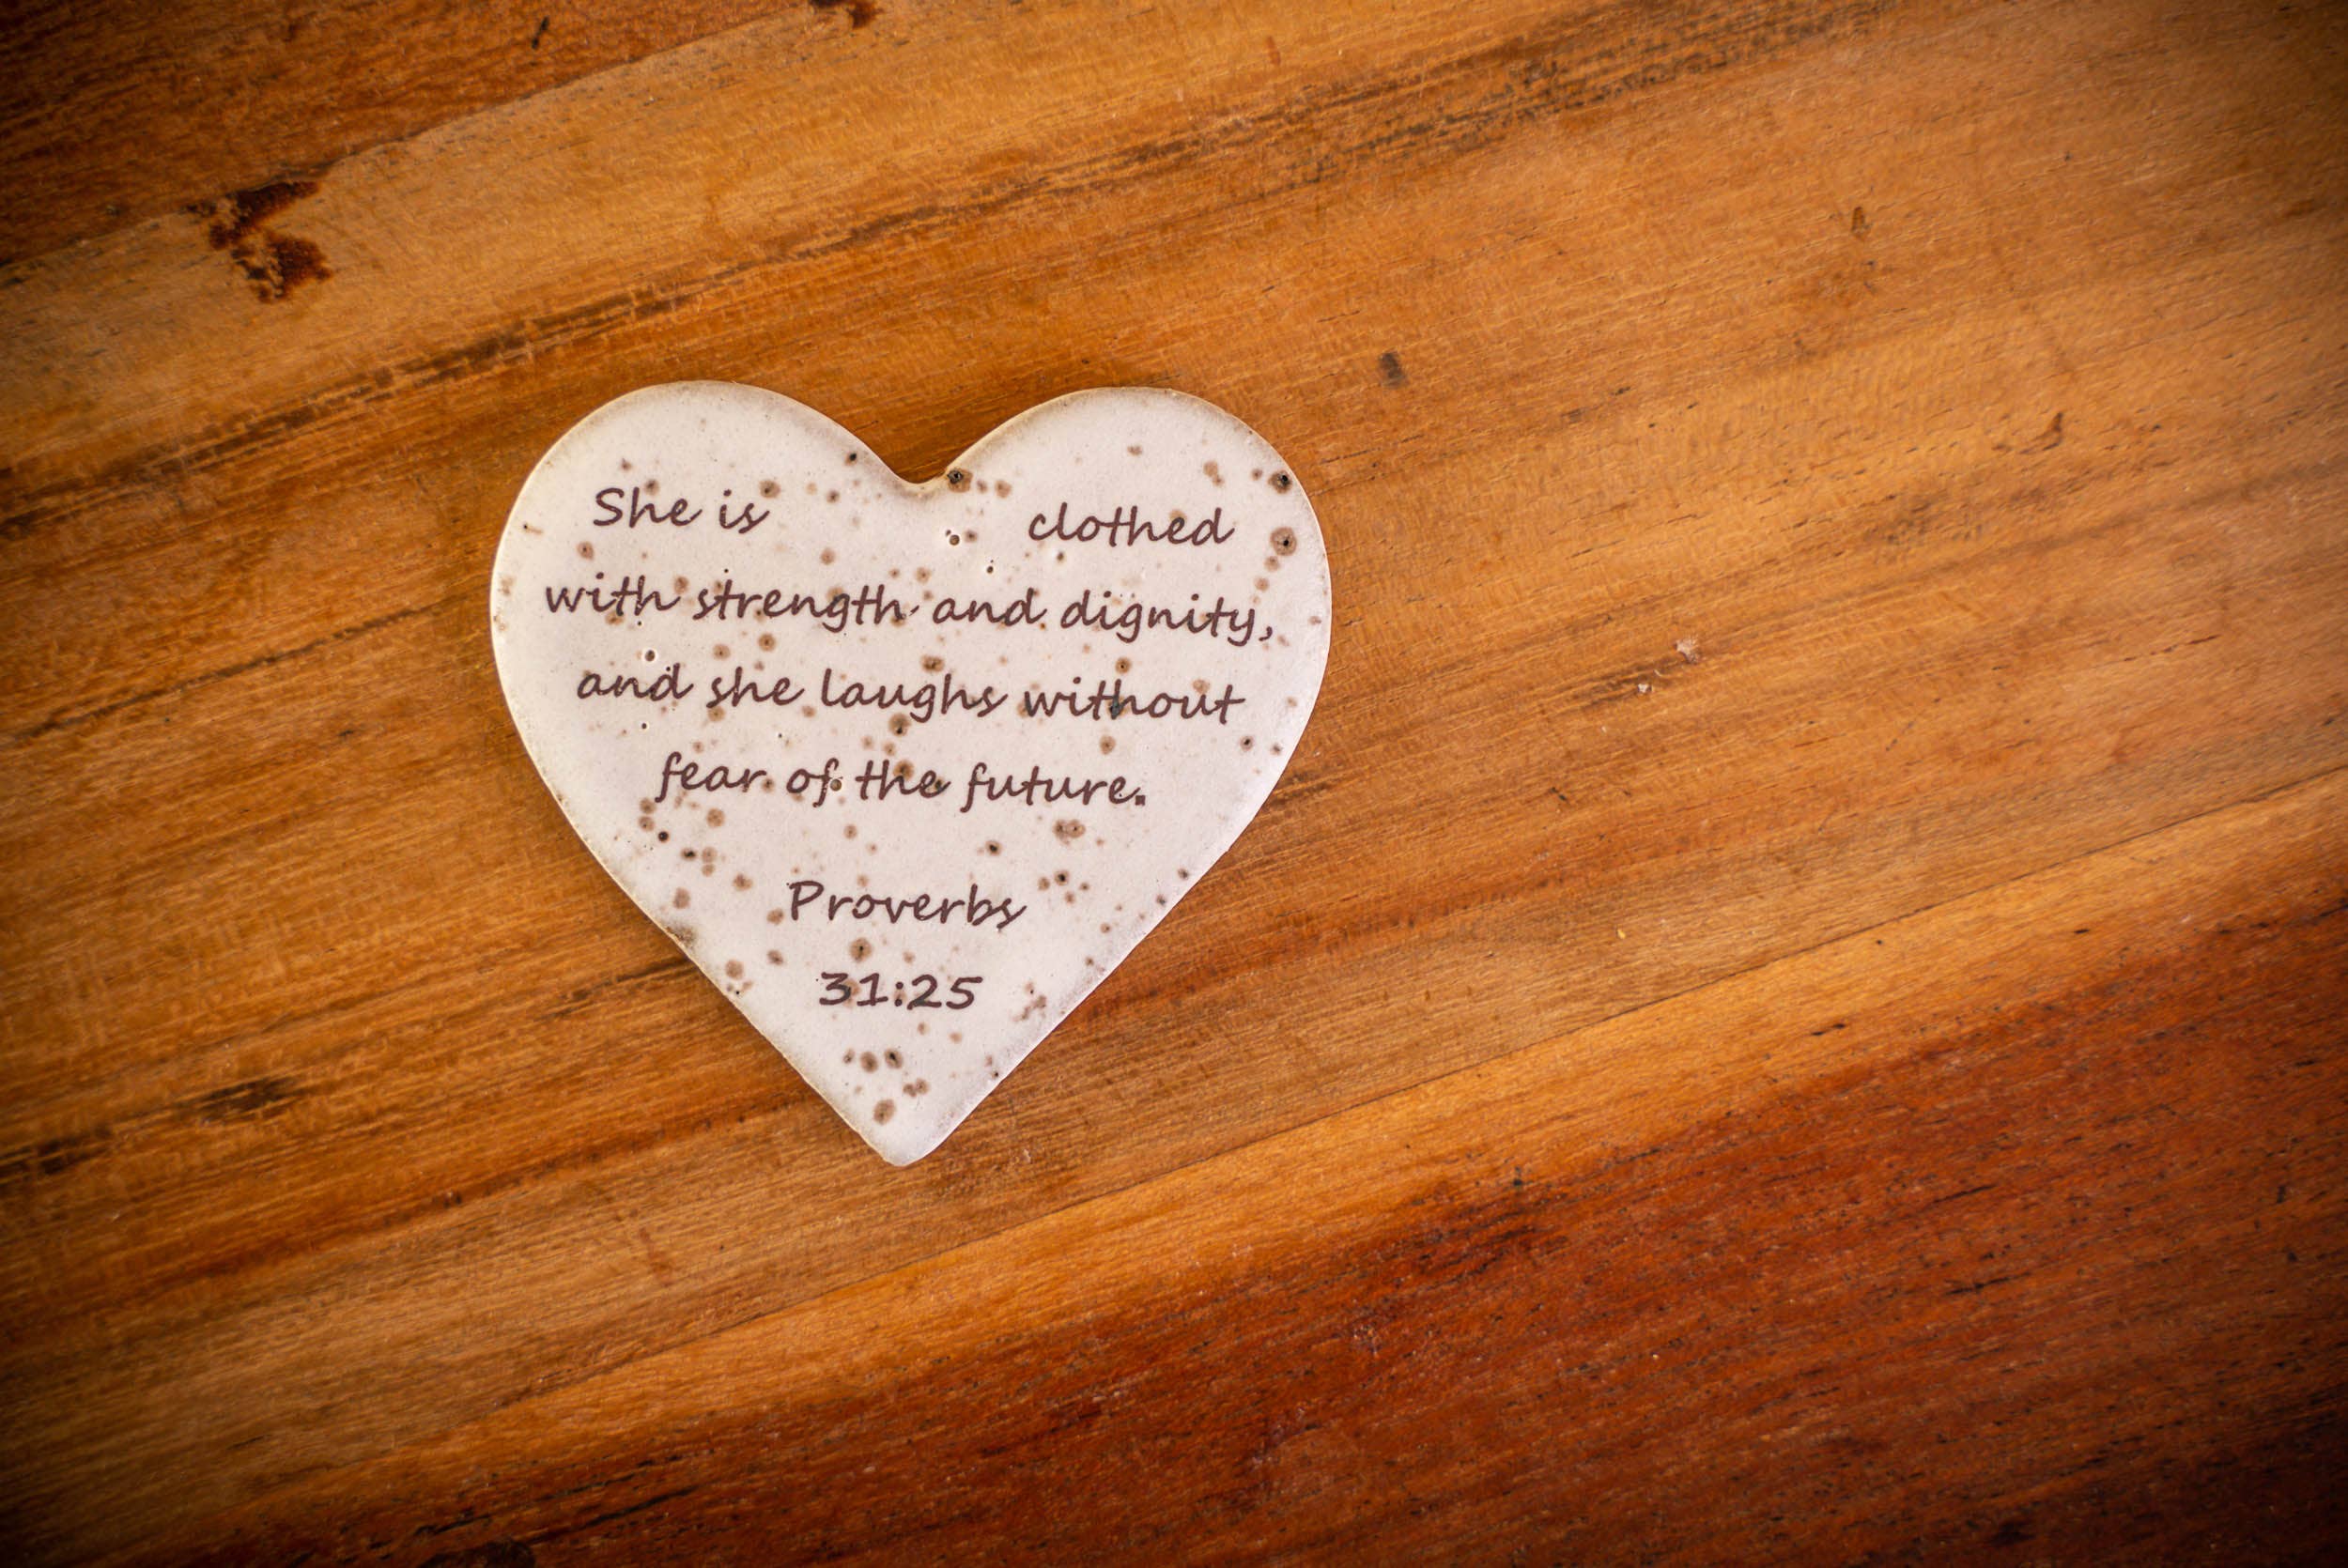 She is clothed
with strength and dignity,
and she laughs without
fear of the future.
Proverbs
31:25